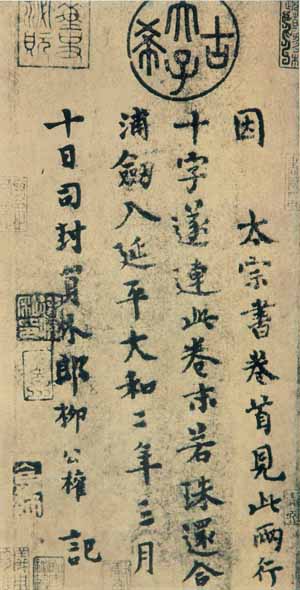 古希天子
因 太宗書卷首見此兩行
十字遂連此卷末若珠還合
浦劒入延平大和二年三月
十日司封員外郎柳公權記